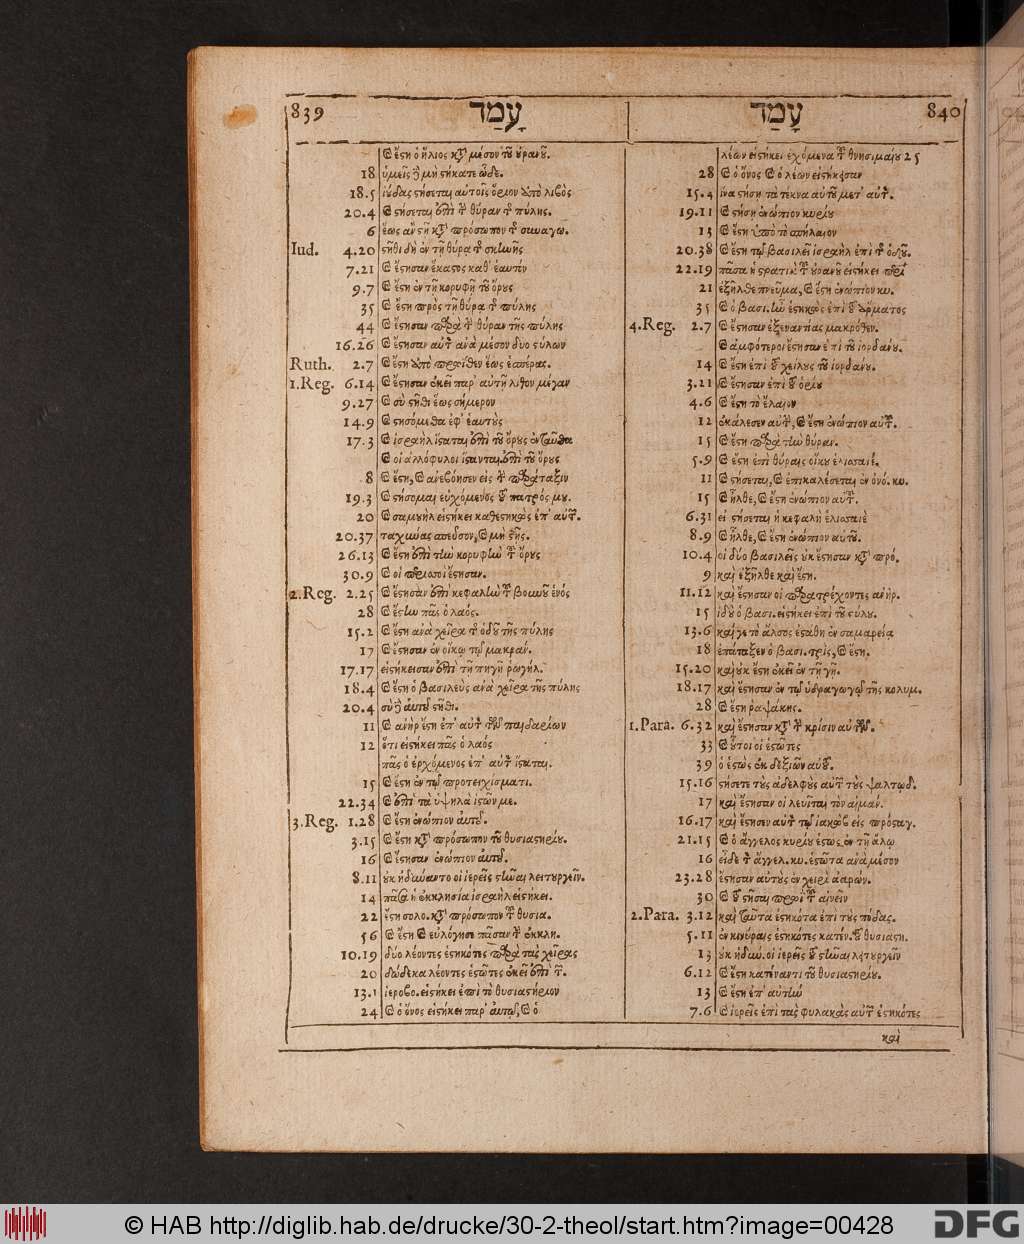 839 עָמַד
καὶ ἔστη ὁ ἥλιος κτ μέσον τοῦ οὐρανοῦ.
18 ὑμεῖς ἢ μὴ στήκατε ὧδε.
18.5 ἰούδας στήσεται αὐτοῖς ὅριον ἀπὸ λιβὸς
20.4 καὶ στήσεται ἐπὶ τ θύραν τ πύλης.
6 ἕως ἂν στῇ κτ πρόσωπον τ συναγω.
Iud. 4.20 στῆθι δὴ ἐν τῇ θύρᾳ τ σκηνῆς
7.21 καὶ ἔστησαν ἕκαστος καθ' ἑαυτὸν
9.7 καὶ ἔστη ἐν τῇ κορυφῇ τοῦ ὄρους
35 καὶ ἔστη πρὸς τῇ θύρᾳ τ πύλης
44 καὶ ἔστησαν παρὰ τ θύραν τῆς πύλης
16.26 καὶ ἔστησαν αὐτ ἀνὰ μέσον δύο στύλων
Ruth. 2.7 καὶ ἔστη ἀπὸ πρωΐθεν ἕως ἑσπέρας.
1.Reg. 6.14 καὶ ἔστησαν ἐκεῖ παρ' αὐτῇ λίθον μέγαν
9.27 καὶ σὺ στῆθι ἕως σήμερον
14.9 καὶ στησόμεθα ἐφ' ἑαυτοὺς
17.3 καὶ ἰσραὴλ ἵσταται ἐπὶ τοῦ ὄρους ἐνταῦθα
καὶ οἱ ἀλλόφυλοι ἵστανται ἐπὶ τοῦ ὄρους
8 καὶ ἔστη, καὶ ἀνεβόησεν εἰς τ παράταξιν
19.3 καὶ στήσομαι ἐχόμενος τοῦ πατρός μου.
20 καὶ σαμουὴλ εἱστήκει καθεστηκὼς ἐπ' αὐτ.
20.37 ταχύνας σπεῦσον, καὶ μὴ στῇς.
26.13 καὶ ἔστη ἐπὶ τὴν κορυφὴν τ ὄρους
30.9 καὶ οἱ περισσοὶ ἔστησαν.
2.Reg. 2.25 καὶ ἔστησαν ἐπὶ κεφαλὴν τ βουνοῦ ἑνός
28 καὶ ἔστη πᾶς ὁ λαός.
15.2 καὶ ἔστη ἀνὰ χεῖρα τ ὁδοῦ τῆς πύλης
17 καὶ ἔστησαν ἐν οἴκῳ τῷ μακράν.
17.17 εἱστήκεισαν ἐπὶ τῇ πηγῇ ῥωγήλ.
18.4 καὶ ἔστη ὁ βασιλεὺς ἀνὰ χεῖρα τῆς πύλης
20.4 σὺ ἢ αὐτοῦ στῆθι.
11 καὶ ἀνὴρ ἔστη ἐπ' αὐτ τῶν παιδαρίων
12 ὅτι εἱστήκει πᾶς ὁ λαός
πᾶς ὁ ἐρχόμενος ἐπ' αὐτ ἵσταται.
15 καὶ ἔστη ἐν τῷ προτειχίσματι.
22.34 καὶ ἐπὶ τὰ ὑψηλὰ ἱστῶν με.
3.Reg. 1.28 καὶ ἔστη ἐνώπιον αὐτοῦ.
3.15 καὶ ἔστη κτ πρόσωπον τοῦ θυσιαστηρίου.
16 καὶ ἔστησαν ἐνώπιον αὐτοῦ.
8.11 οὐκ ἠδύναντο οἱ ἱερεῖς στῆναι λειτουργεῖν.
14 πᾶσα ἡ ἐκκλησία ἰσραὴλ εἱστήκει.
22 ἔστη σολο. κτ πρόσωπον τ θυσια.
56 καὶ ἔστη καὶ εὐλόγησε πᾶσαν τ ἐκκλη.
10.19 δύο λέοντες ἑστηκότες παρὰ τὰς χεῖρας
20 δώδεκα λέοντες ἑστῶτες ἐκεῖ ἐπὶ τ.
13.1 ἱεροβο. εἱστήκει ἐπὶ τὸ θυσιαστήριον
24 καὶ ὁ ὄνος εἱστήκει παρ' αὐτῷ, καὶ ὁ
עָמַד 840
λέων εἱστήκει ἐχόμενα τ θνησιμαίου 25
28 καὶ ὁ ὄνος καὶ ὁ λέων εἱστήκεισαν
15.4 ἵνα στήσῃ τὰ τέκνα αὐτοῦ μετ' αὐτ.
19.11 καὶ στήσῃ ἐνώπιον κυρίου
13 καὶ ἔστη ὑπὸ τὸ σπήλαιον
20.38 καὶ ἔστη τῷ βασιλεῖ ἰσραὴλ ἐπὶ τ ὁδοῦ.
22.19 πᾶσα ἡ στρατιὰ τ οὐρανοῦ εἱστήκει περὶ
21 ἐξῆλθε πνεῦμα, καὶ ἔστη ἐνώπιον κυ.
35 καὶ ὁ βασι. ἦν ἑστηκὼς ἐπὶ τοῦ ἅρματος
4.Reg. 2.7 καὶ ἔστησαν ἐξεναντίας μακρόθεν.
καὶ ἀμφότεροι ἔστησαν ἐπὶ τοῦ ἰορδάνου.
14 καὶ ἔστη ἐπὶ τοῦ χείλους τοῦ ἰορδάνου.
3.21 καὶ ἔστησαν ἐπὶ τοῦ ὁρίου
4.6 καὶ ἔστη τὸ ἔλαιον
12 ἐκάλεσεν αὐτ, καὶ ἔστη ἐνώπιον αὐτ.
15 καὶ ἔστη παρὰ τὴν θύραν.
5.9 καὶ ἔστη ἐπὶ θύραις οἴκου ἐλισσαιέ.
11 καὶ στήσεται, καὶ ἐπικαλέσεται ἐν ὀνό. κυ.
15 καὶ ἦλθε, καὶ ἔστη ἐνώπιον αὐτ.
6.31 εἰ στήσεται ἡ κεφαλὴ ἐλισσαιὲ
8.9 καὶ ἦλθε, καὶ ἔστη ἐνώπιον αὐτοῦ.
10.4 οἱ δύο βασιλεῖς οὐκ ἔστησαν κτ πρό.
9 καὶ ἐξῆλθε καὶ ἔστη.
11.12 καὶ ἔστησαν οἱ παρατρέχοντες ἀνήρ.
15 ἰδοὺ ὁ βασι. εἱστήκει ἐπὶ τοῦ στύλου.
13.6 καί γε τὸ ἄλσος ἐστάθη ἐν σαμαρείᾳ
18 ἐπάταξεν ὁ βασι. τρὶς, καὶ ἔστη.
15.20 καὶ οὐκ ἔστη ἐκεῖ ἐν τῇ γῇ.
18.17 καὶ ἔστησαν ἐν τῷ ὑδραγωγῷ τῆς κολυμ.
28 καὶ ἔστη ῥαψάκης.
1.Para. 6.32 καὶ ἔστησαν κτ τ κρίσιν αὐτῶν.
33 καὶ οὗτοι οἱ ἑστῶτες
39 ὁ ἑστὼς ἐκ δεξιῶν αὐτοῦ.
15.16 στήσετε τοὺς ἀδελφοὺς αὐτ τοὺς ψαλτῳδ.
17 καὶ ἔστησαν οἱ λευῖται τὸν αἱμάν.
16.17 καὶ ἔστησεν αὐτ τῷ ἰακὼβ εἰς πρόσταγ.
21.15 καὶ ὁ ἄγγελος κυρίου ἑστὼς ἐν τῇ ἅλῳ
16 εἶδε τ ἄγγελ. κυ. ἑστῶτα ἀνὰ μέσον
23.28 ἔστησαν αὐτοὺς ἐν χειρὶ ἀαρών.
30 καὶ τοῦ στῆσαι πρωῒ τ αἰνεῖν
2.Para. 3.12 καὶ ταῦτα ἑστηκότα ἐπὶ τοὺς πόδας.
5.11 ἐν κινύραις ἑστηκότες κατέν. τοῦ θυσιαστη.
13 οὐκ ἠδύν. οἱ ἱερεῖς τοῦ στῆναι λειτουργεῖν
6.12 καὶ ἔστη κατέναντι τοῦ θυσιαστηρίου.
13 καὶ ἔστη ἐπ' αὐτὴν
7.6 καὶ ἱερεῖς ἐπὶ τὰς φυλακὰς αὐτ ἑστηκότες
καὶ
© HAB http://diglib.hab.de/drucke/30-2-theol/start.htm?image=00428
DFG